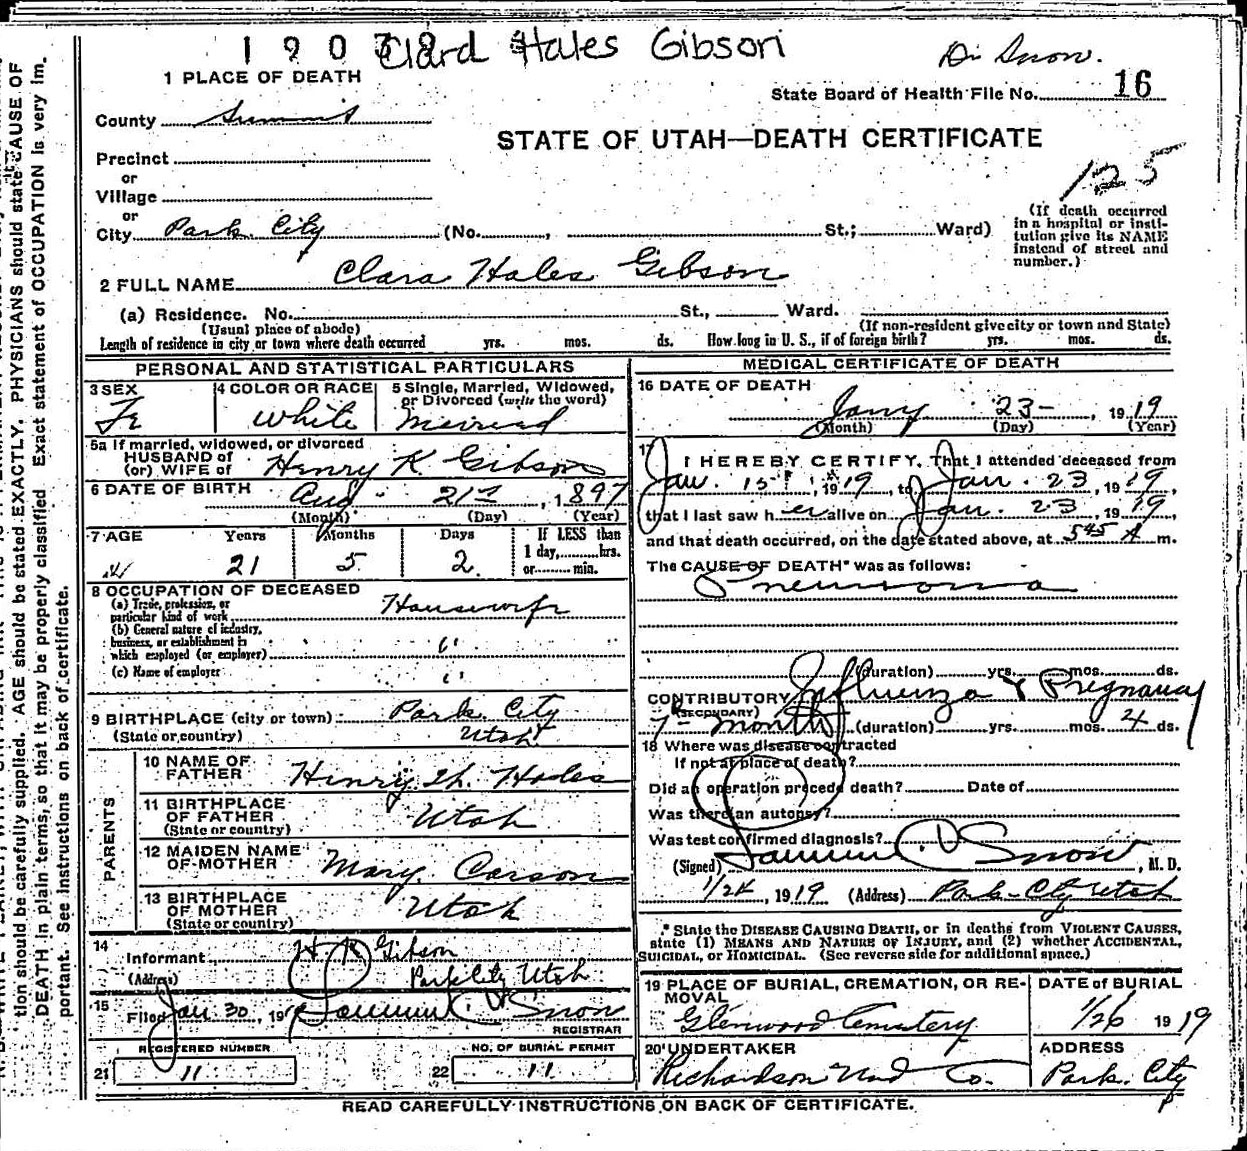 Clard Hales Gibson
Dr Snow.
1 PLACE OF DEATH
State Board of Health File No. 16
County Summit
STATE OF UTAH—DEATH CERTIFICATE
Precinct
or
125
Village
or
City Park City (No. , St.; Ward)
(If death occurred in a hospital or institution give its NAME instead of street and number.)
2 FULL NAME Clara Hales Gibson
(a) Residence. No. St., Ward.
(Usual place of abode) (If non-resident give city or town and State)
Length of residence in city or town where death occurred yrs. mos. ds. How long in U. S., if of foreign birth? yrs. mos. ds.
PERSONAL AND STATISTICAL PARTICULARS
3 SEX Fe
4 COLOR OR RACE White
5 Single, Married, Widowed, or Divorced (write the word) Married
5a If married, widowed, or divorced
HUSBAND of
(or) WIFE of Henry K. Gibson
6 DATE OF BIRTH Aug 21st, 1897
(Month) (Day) (Year)
7 AGE Years Months Days If LESS than
21 5 2 1 day, hrs.
or min.
8 OCCUPATION OF DECEASED
(a) Trade, profession, or particular kind of work Housewife
(b) General nature of industry, business, or establishment in which employed (or employer) "
(c) Name of employer "
9 BIRTHPLACE (city or town) Park City
(State or country) Utah
PARENTS
10 NAME OF FATHER Henry Th. Hales
11 BIRTHPLACE OF FATHER (State or country) Utah
12 MAIDEN NAME OF MOTHER Mary Carson
13 BIRTHPLACE OF MOTHER (State or country) Utah
14
Informant H K Gibson
(Address) Park City Utah
15
Filed Jan 30, 19 Samuel Snow
REGISTRAR
REGISTERED NUMBER NO. OF BURIAL PERMIT
21 11 22 11
MEDICAL CERTIFICATE OF DEATH
16 DATE OF DEATH
Jany 23-, 1919
(Month) (Day) (Year)
17 I HEREBY CERTIFY, That I attended deceased from
Jan. 15, 1919, to Jan. 23, 1919,
that I last saw her alive on Jan. 23, 1919,
and that death occurred, on the date stated above, at 545 A m.
The CAUSE OF DEATH* was as follows:
Pneumonia
(duration) yrs. mos. ds.
CONTRIBUTORY Influenza & Pregnancy
(SECONDARY)
7- months (duration) yrs. mos. 4 ds.
18 Where was disease contracted
If not at place of death?
Did an operation precede death? Date of
Was there an autopsy?
Was test confirmed diagnosis?
(Signed) Samuel Snow, M. D.
1/24, 1919 (Address) Park City Utah
* State the DISEASE CAUSING DEATH, or in deaths from VIOLENT CAUSES,
state (1) MEANS AND NATURE OF INJURY, and (2) whether ACCIDENTAL,
SUICIDAL, or HOMICIDAL. (See reverse side for additional space.)
19 PLACE OF BURIAL, CREMATION, OR REMOVAL DATE of BURIAL
Glenwood Cemetery 1/26 1919
20 UNDERTAKER ADDRESS
Richardson Und Co. Park City
READ CAREFULLY INSTRUCTIONS ON BACK OF CERTIFICATE.
tion should be carefully supplied. AGE should be stated EXACTLY. PHYSICIANS should state CAUSE OF
DEATH in plain terms, so that it may be properly classified. Exact statement of OCCUPATION is very im-
portant. See instructions on back of certificate.